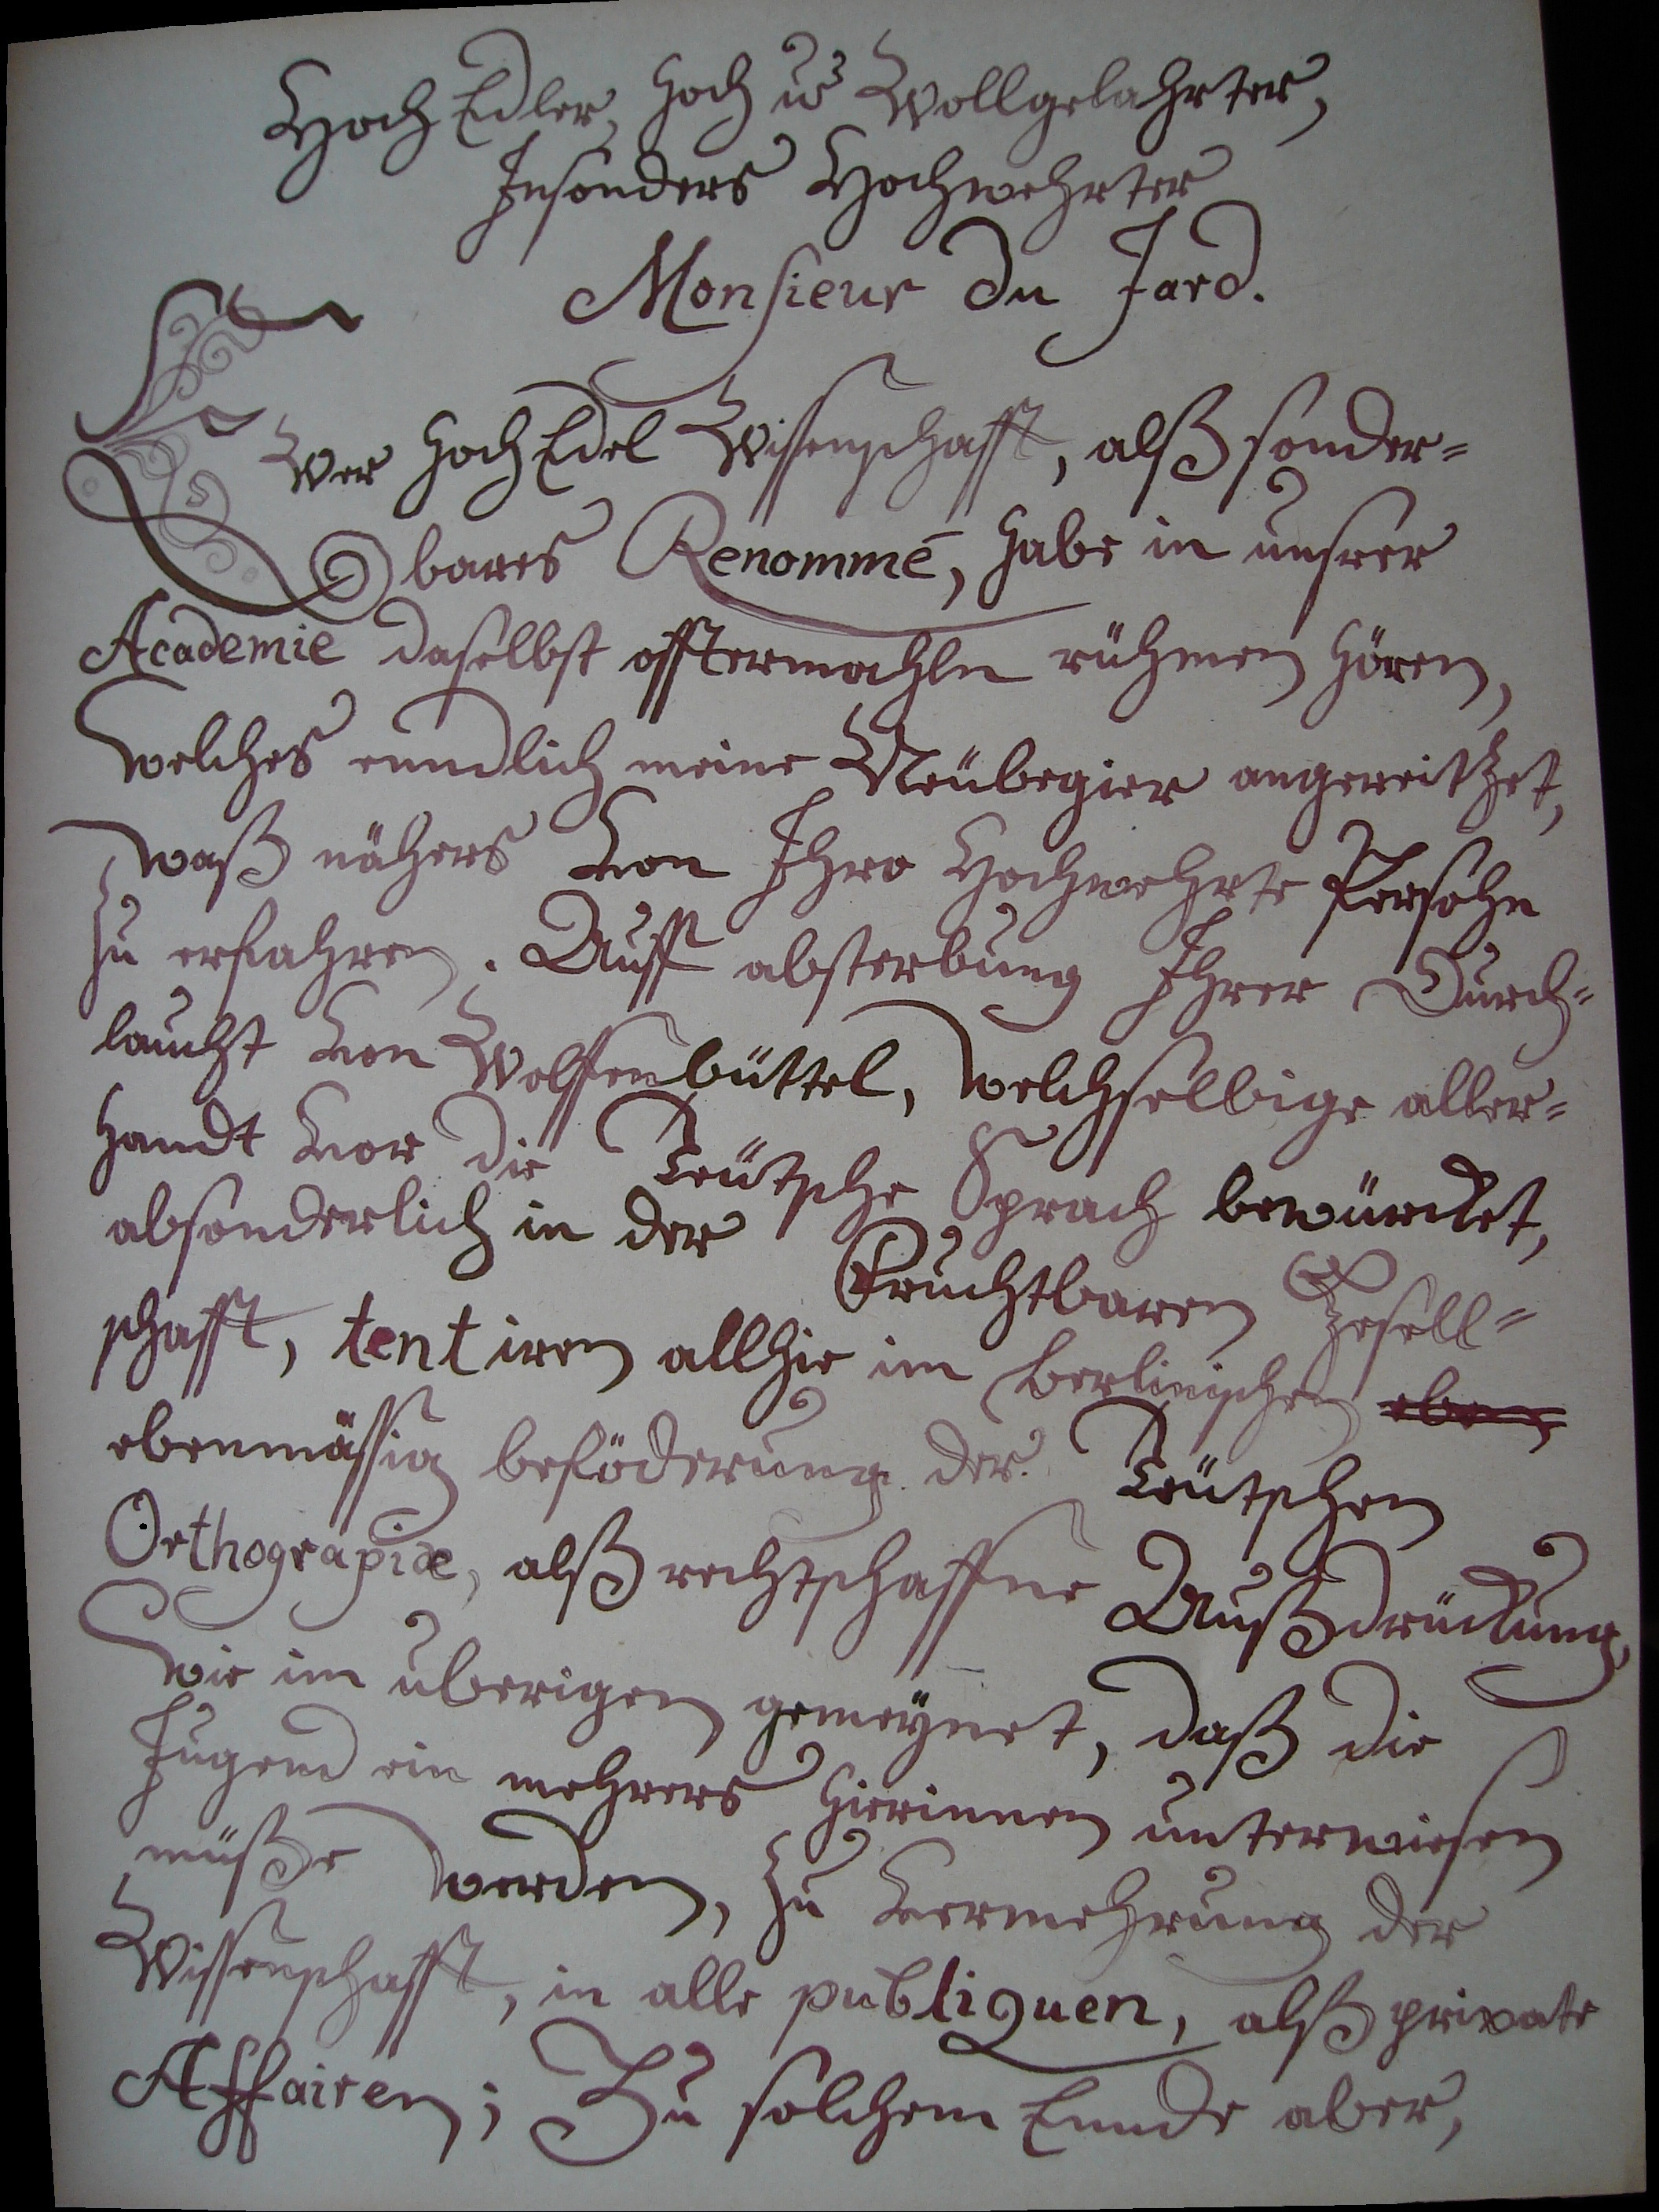 HochEdler, Hoch u. Wollgelahrter,
Insonders Hochwehrter
Monsieur du Jard.
Ewer HochEdel Wissenschafft, alß sonder=
bares Renommé, habe in unsrer
Academie daselbst offtermahln rühmen hören,
welches enndlich meine Neübegier angereitzet,
waß nähers von Ihro Hochwehrte Persohn
zu erfahren. Auff absterbung Ihrer Durch=
laucht von Wolffenbüttel, welchselbige aller=
handt vor die Teütsche Sprach bewürcket,
absonderlich in der Fruchtbaren Gesell=
schafft, tentiren allhie im Berlinischen eben
ebenmässig beföderung der Teütschen
Orthograpiæ, alß rechtschaffne Außdrückung,
wie im uberigen gemeÿnet, daß die
Jugend ein mehrers hierinnen unterwiesen
müße werden, zu vermehrung der
Wissenschafft, in alle publiquen, alß private
Affairen; Zu solchem Ennde aber,